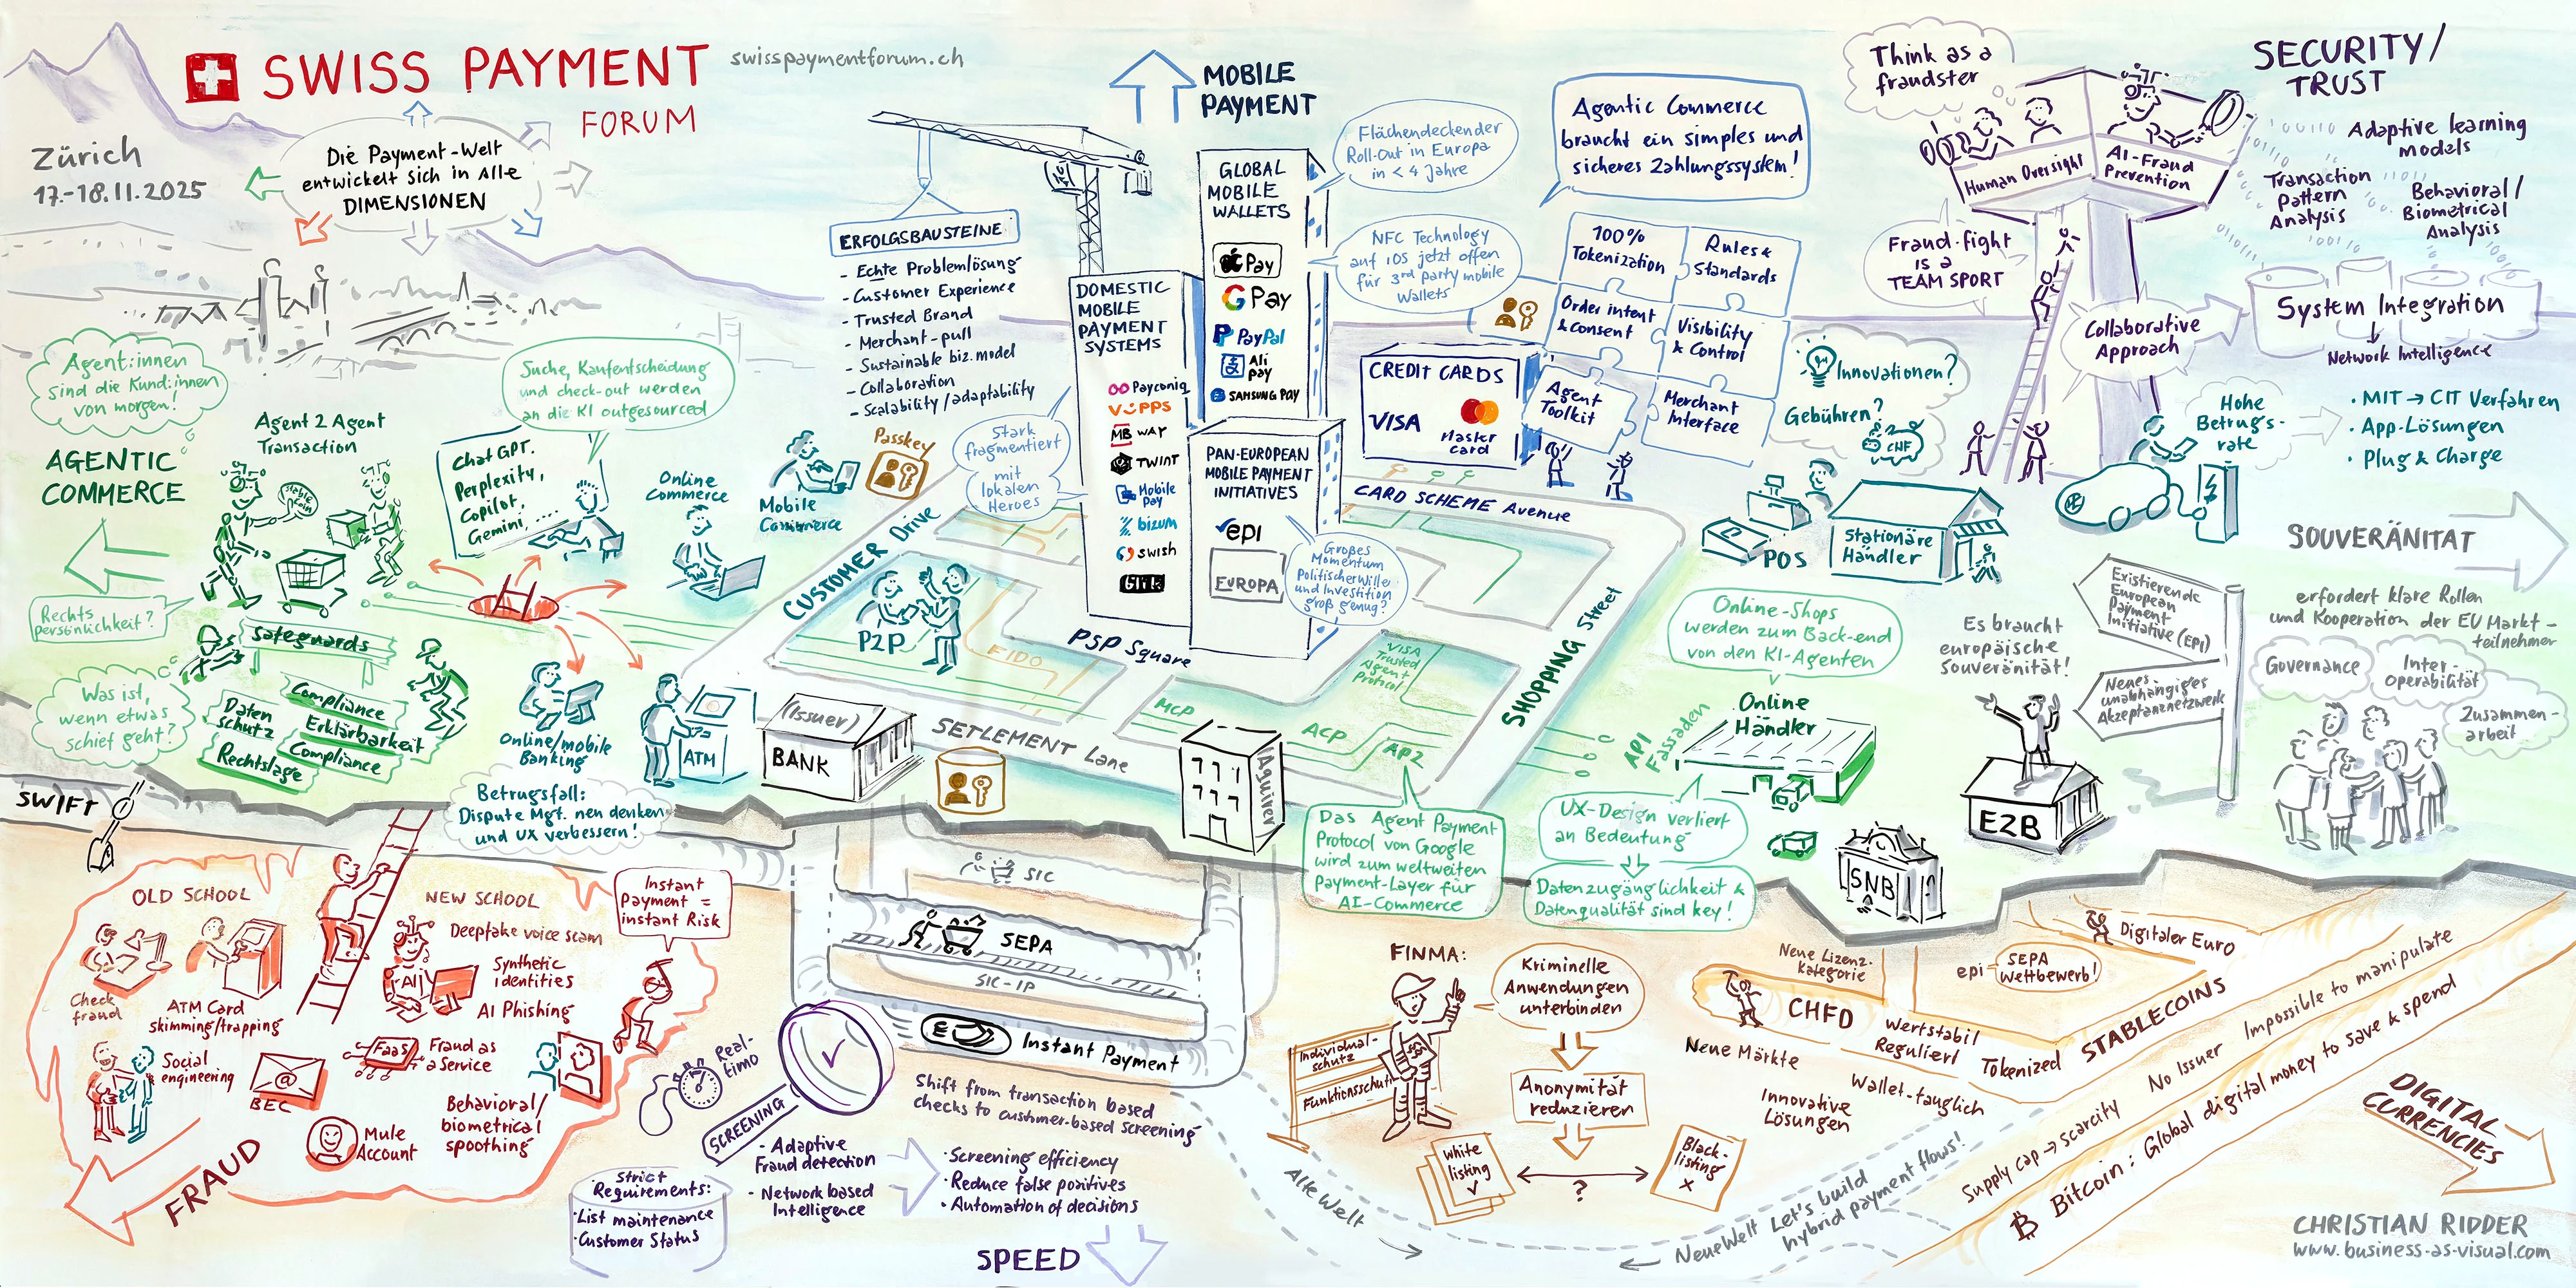 SWISS PAYMENT
FORUM
swisspaymentforum.ch
Zürich
17.-18.11.2025
Die Payment-Welt
entwickelt sich in Alle
DIMENSIONEN
Agent:innen
sind die Kund:innen
von morgen!
AGENTIC
COMMERCE
Agent 2 Agent
Transaction
stable
coin
Suche, Kaufentscheidung
und check-out werden
an die KI outgesourced
Chat GPT.
Perplexity,
Copilot,
Gemini, ....
Online
Commerce
Mobile
Commerce
Passkey
Rechts
persönlichkeit?
safeguards
Was ist,
wenn etwas
schief geht?
Daten
schutz
Compliance
Erklärbarkeit
Rechtslage
Compliance
Online/mobile
Banking
ATM
Betrugsfall:
Dispute Mgt. neu denken
und UX verbessern!
ERFOLGSBAUSTEINE
- Echte Problemlösung
- Customer Experience
- Trusted Brand
- Merchant-pull
- Sustainable biz. model
- Collaboration
- Scalability/adaptability
Stark
fragmentiert
mit
lokalen
Heroes
MOBILE
PAYMENT
DOMESTIC
MOBILE
PAYMENT
SYSTEMS
Payconiq
VIPPS
MB WAY
TWINT
Mobile
Pay
bizum
swish
BLIK
GLOBAL
MOBILE
WALLETS
Pay
G Pay
PayPal
Ali
pay
SAMSUNG PAY
PAN-EUROPEAN
MOBILE PAYMENT
INITIATIVES
epi
EUROPA
Großes
Momentum
Politischer Wille
und Investition
groß genug?
Flächendeckender
Roll-Out in Europa
in < 4 Jahre
NFC Technology
auf iOS jetzt offen
für 3rd party mobile
Wallets
Agentic Commerce
braucht ein simples und
sicheres Zahlungssystem!
100%
Tokenization
Rules &
Standards
Order intent
& consent
Visibility
& Control
Agent
Toolkit
Merchant
Interface
CREDIT CARDS
VISA
Master
card
CARD SCHEME Avenue
CUSTOMER Drive
P2P
FIDO
PSP Square
VISA
Trusted
Agent
Protocol
MCP
ACP
AP2
SHOPPING Street
SETLEMENT Lane
(Issuer)
BANK
Aquirer
Innovationen?
Gebühren?
CHF
POS
Stationäre
Händler
Think as a
fraudster
Human Oversight
AI-Fraud
Prevention
SECURITY/
TRUST
Adaptive learning
models
Transaction
Pattern
Analysis
Behavioral/
Biometrical
Analysis
Fraud-fight
is a
TEAM SPORT
Collaborative
Approach
System Integration
Network Intelligence
Hohe
Betrugs-
rate
• MIT → CIT Verfahren
• App-Lösungen
• Plug & Charge
SOUVERÄNITÄT
erfordert klare Rollen
und Kooperation der EU Markt-
teilnehmer
Governance
Inter-
operabilität
Zusammen-
arbeit
Existierende
European
Payment
Initiative (EPI)
Neues
unabhängiges
Akzeptanznetzwerk
Es braucht
europäische
Souveränität!
EZB
SNB
Online-Shops
werden zum Back-end
von den KI-Agenten
Online
Händler
API
Fassaden
UX-Design verliert
an Bedeutung
Datenzugänglichkeit &
Datenqualität sind key!
Das Agent Payment
Protocol von Google
wird zum weltweiten
Payment-Layer für
AI-Commerce
SWIFT
OLD SCHOOL
Check
fraud
ATM Card
skimming/trapping
Social
engineering
BEC
NEW SCHOOL
Deepfake voice scam
Synthetic
identities
AI
AI Phishing
FaaS
Fraud as
a Service
Behavioral/
biometrical
spoothing
Mule
Account
Instant
Payment =
instant Risk
FRAUD
SIC
SEPA
SIC-IP
Instant Payment
Real-
time
SCREENING
Shift from transaction based
checks to custumer-based screening
- Adaptive
Fraud detection
- Network based
Intelligence
• Screening efficiency
• Reduce false positives
• Automation of decisions
Strict
Requirements:
• List maintenance
• Customer Status
SPEED
FINMA:
Kriminelle
Anwendungen
unterbinden
Individual-
schutz
Funktionsschutz
Anonymität
reduzieren
White
listing
?
Black-
listing
x
Alte Welt
Neue Welt
Let's build
hybrid payment flows!
Neue Lizenz-
kategorie
CHFD
Neue Märkte
Wertstabil
Reguliert
Tokenized
Wallet-tauglich
Innovative
Lösungen
STABLECOINS
epi
SEPA
Wettbewerb!
Digitaler Euro
Supply cap → scarcity
No Issuer
Impossible to manipulate
Bitcoin: Global digital money to save & spend
DIGITAL
CURRENCIES
CHRISTIAN RIDDER
www.business-as-visual.com